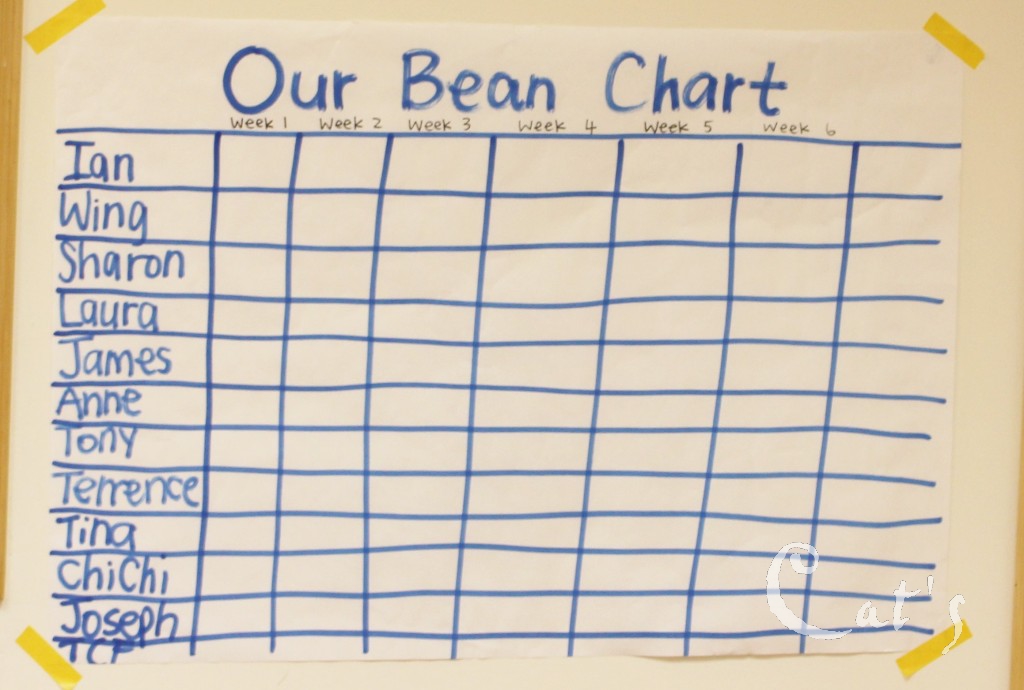 Our Bean Chart
Week 1 Week 2 Week 3 Week 4 Week 5 Week 6
Ian
Wing
Sharon
Laura
James
Anne
Tony
Terrence
Tina
ChiChi
Joseph
Cat's